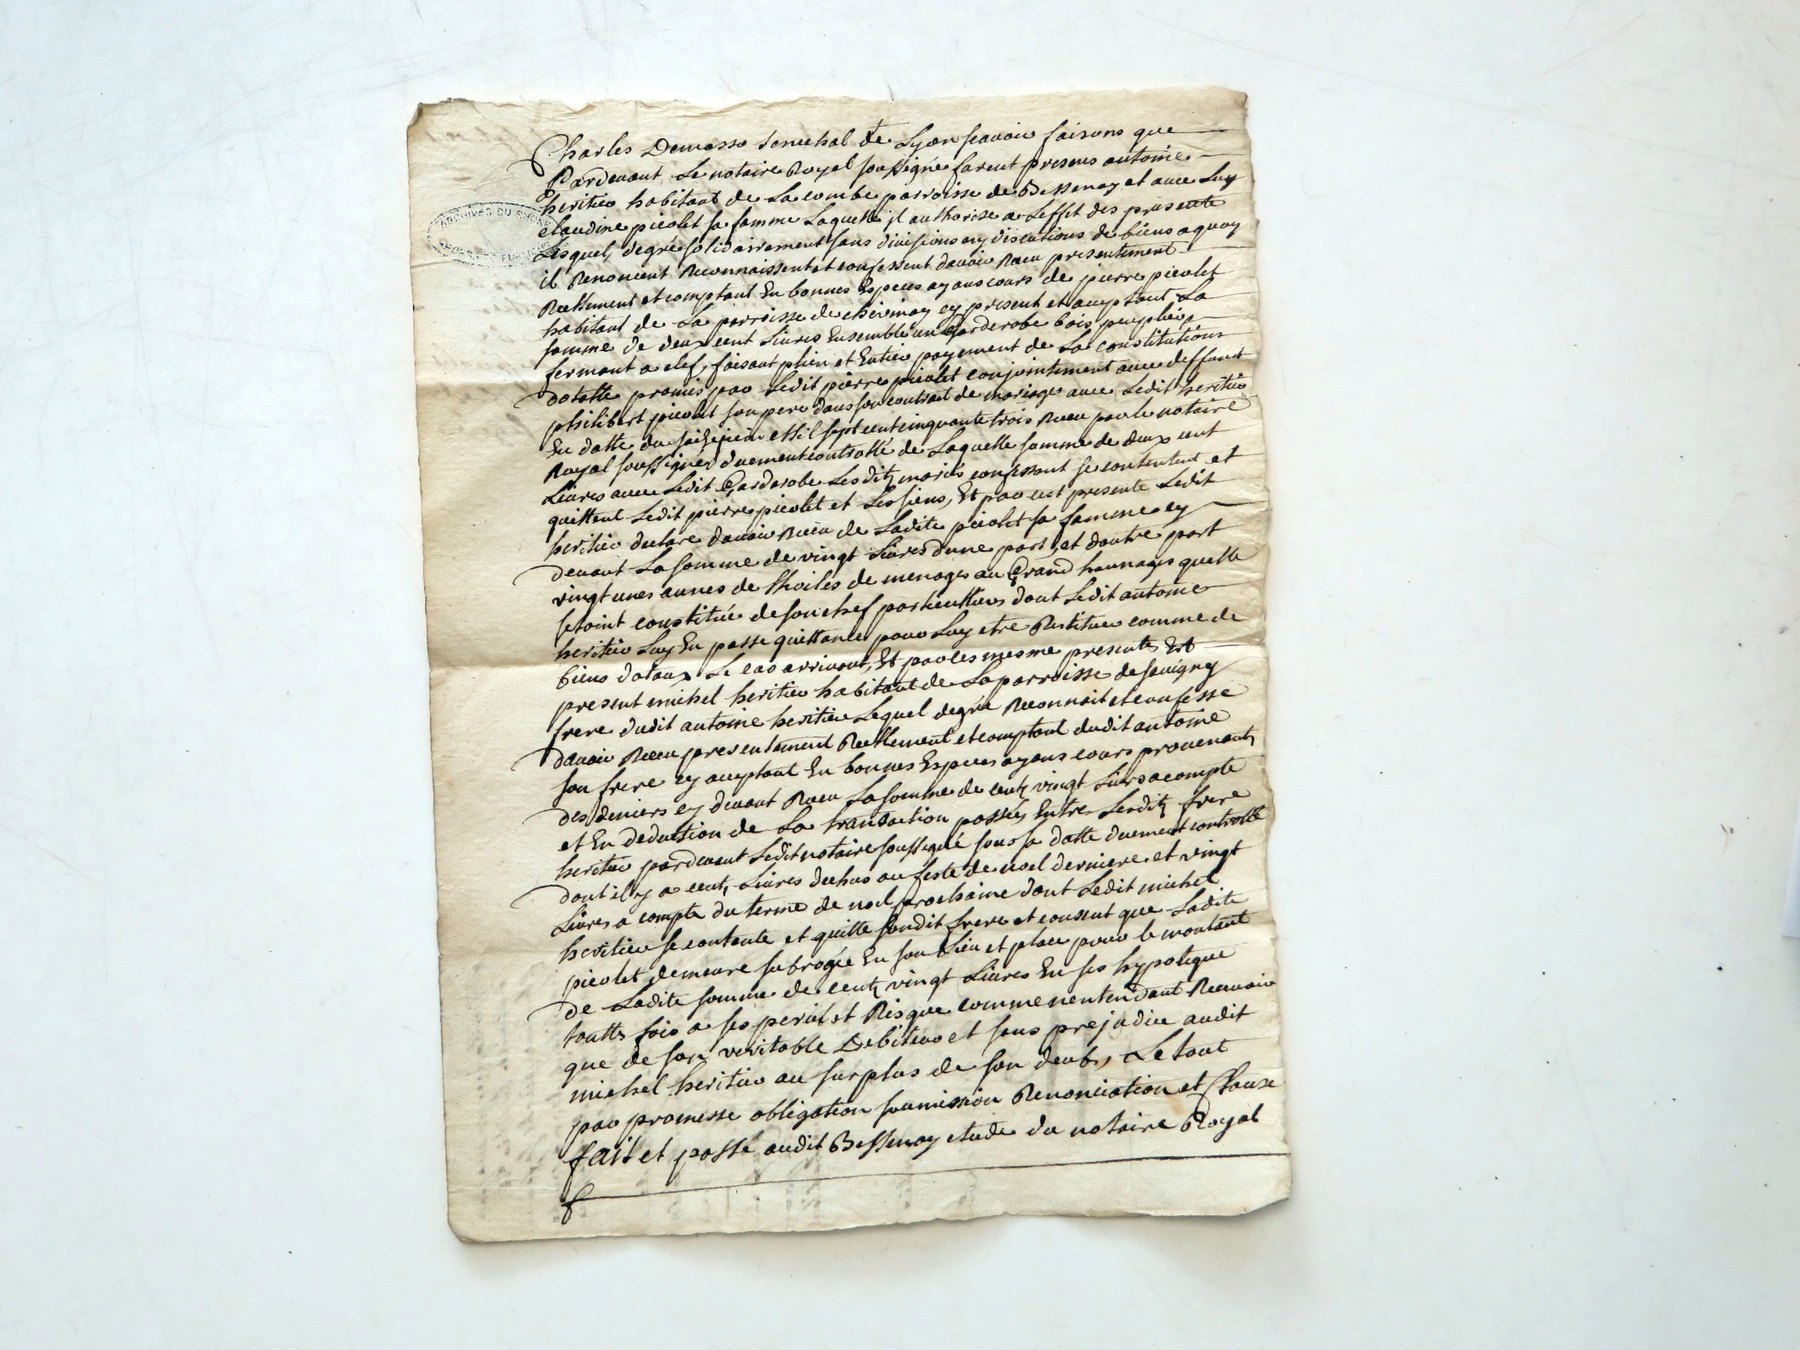 Charles Demasso senechal de Lyon scavoir faisons que
Pardevant Le notaire Royal soussigné furent presens antoine
heritier habitant de La combe parroisse de Bessenay et avec Luy
claudine picolet sa famme Laquelle jl authorise a Leffet des presente
Lesquel, degré solidairement sans divisions ny discutions de biens aquoy
il Renoncent Reconnaissent et confessent davoir Receu presentement
Reellement et comptant En bonnes Especes ayans cours de pierre picolet
habitant de La parroisse de chevinay cy present et acceptant La
somme de deux cent Livres Ensemble un garderobe bois peuplier
fermant a clef, faisant plein et Entier payement de La constitutions
dotalle promis par Ledit pierre picolet conjointement avec deffunt
philibert picolet son pere dans son contract de mariage avec Ledit heritier
En datte du mil sept cent cinquante trois Receu par le notaire
Royal soussigné duement controllé de Laquelle somme de deux cent
Livres avec Ledit garderobe Lesdits mariés confessent se contentent et
quittent Ledit pierre picolet et Les siens, Et par cest presente Ledit
heritier declare davoir Receu de Ladite picolet sa famme cy
devant La somme de vingt Livres dune part, et dautre part
vingt unes aunes de thoiles de menages au Grand haunages quelle
setoint constituée de son chef particulliers dont Ledit antoine
heritier Luy En passe quittance pour Luy etre Restituer comme de
biens dotaux Le cas arrivant, Et par les mesme presente Est
present michel heritier habitant de La parroisse de savigny
frere dudit antoine heritier Lequel degré Reconnoit et confesse
davoir Receu presentement Reellement et comptant dudit antoine
son frere cy acceptant En bonnes Especes ayans cours provenant
des deniers cy devant Receu La somme de cent vingt Livres acompte
et En deduction de La transaction passée, Entre Lesdits frere
heritier pardevant Ledit notaire soussigné sous sa datte duement controllé
dont il y a cent, Livres dechus au feste de noel derniere et vingt
Livres a compte du terme de noel prochaine dont Ledit michel
heritier se contente et quitte sondit frere et consent que Ladite
picolet demeure subrogée En son Lieu et place pour le montant
de Ladite somme de cent vingt Livres En ses hypoteque
toutte fois a ses peril et Risque comme nentendant Recevoir
que de son veritable Debiteur et sans prejudice audit
michel heritier au surplus de son deub, Le tout
par promesse obligation soumission Renonciation et Clause
fait et passé audit Bessenay etude du notaire Royal